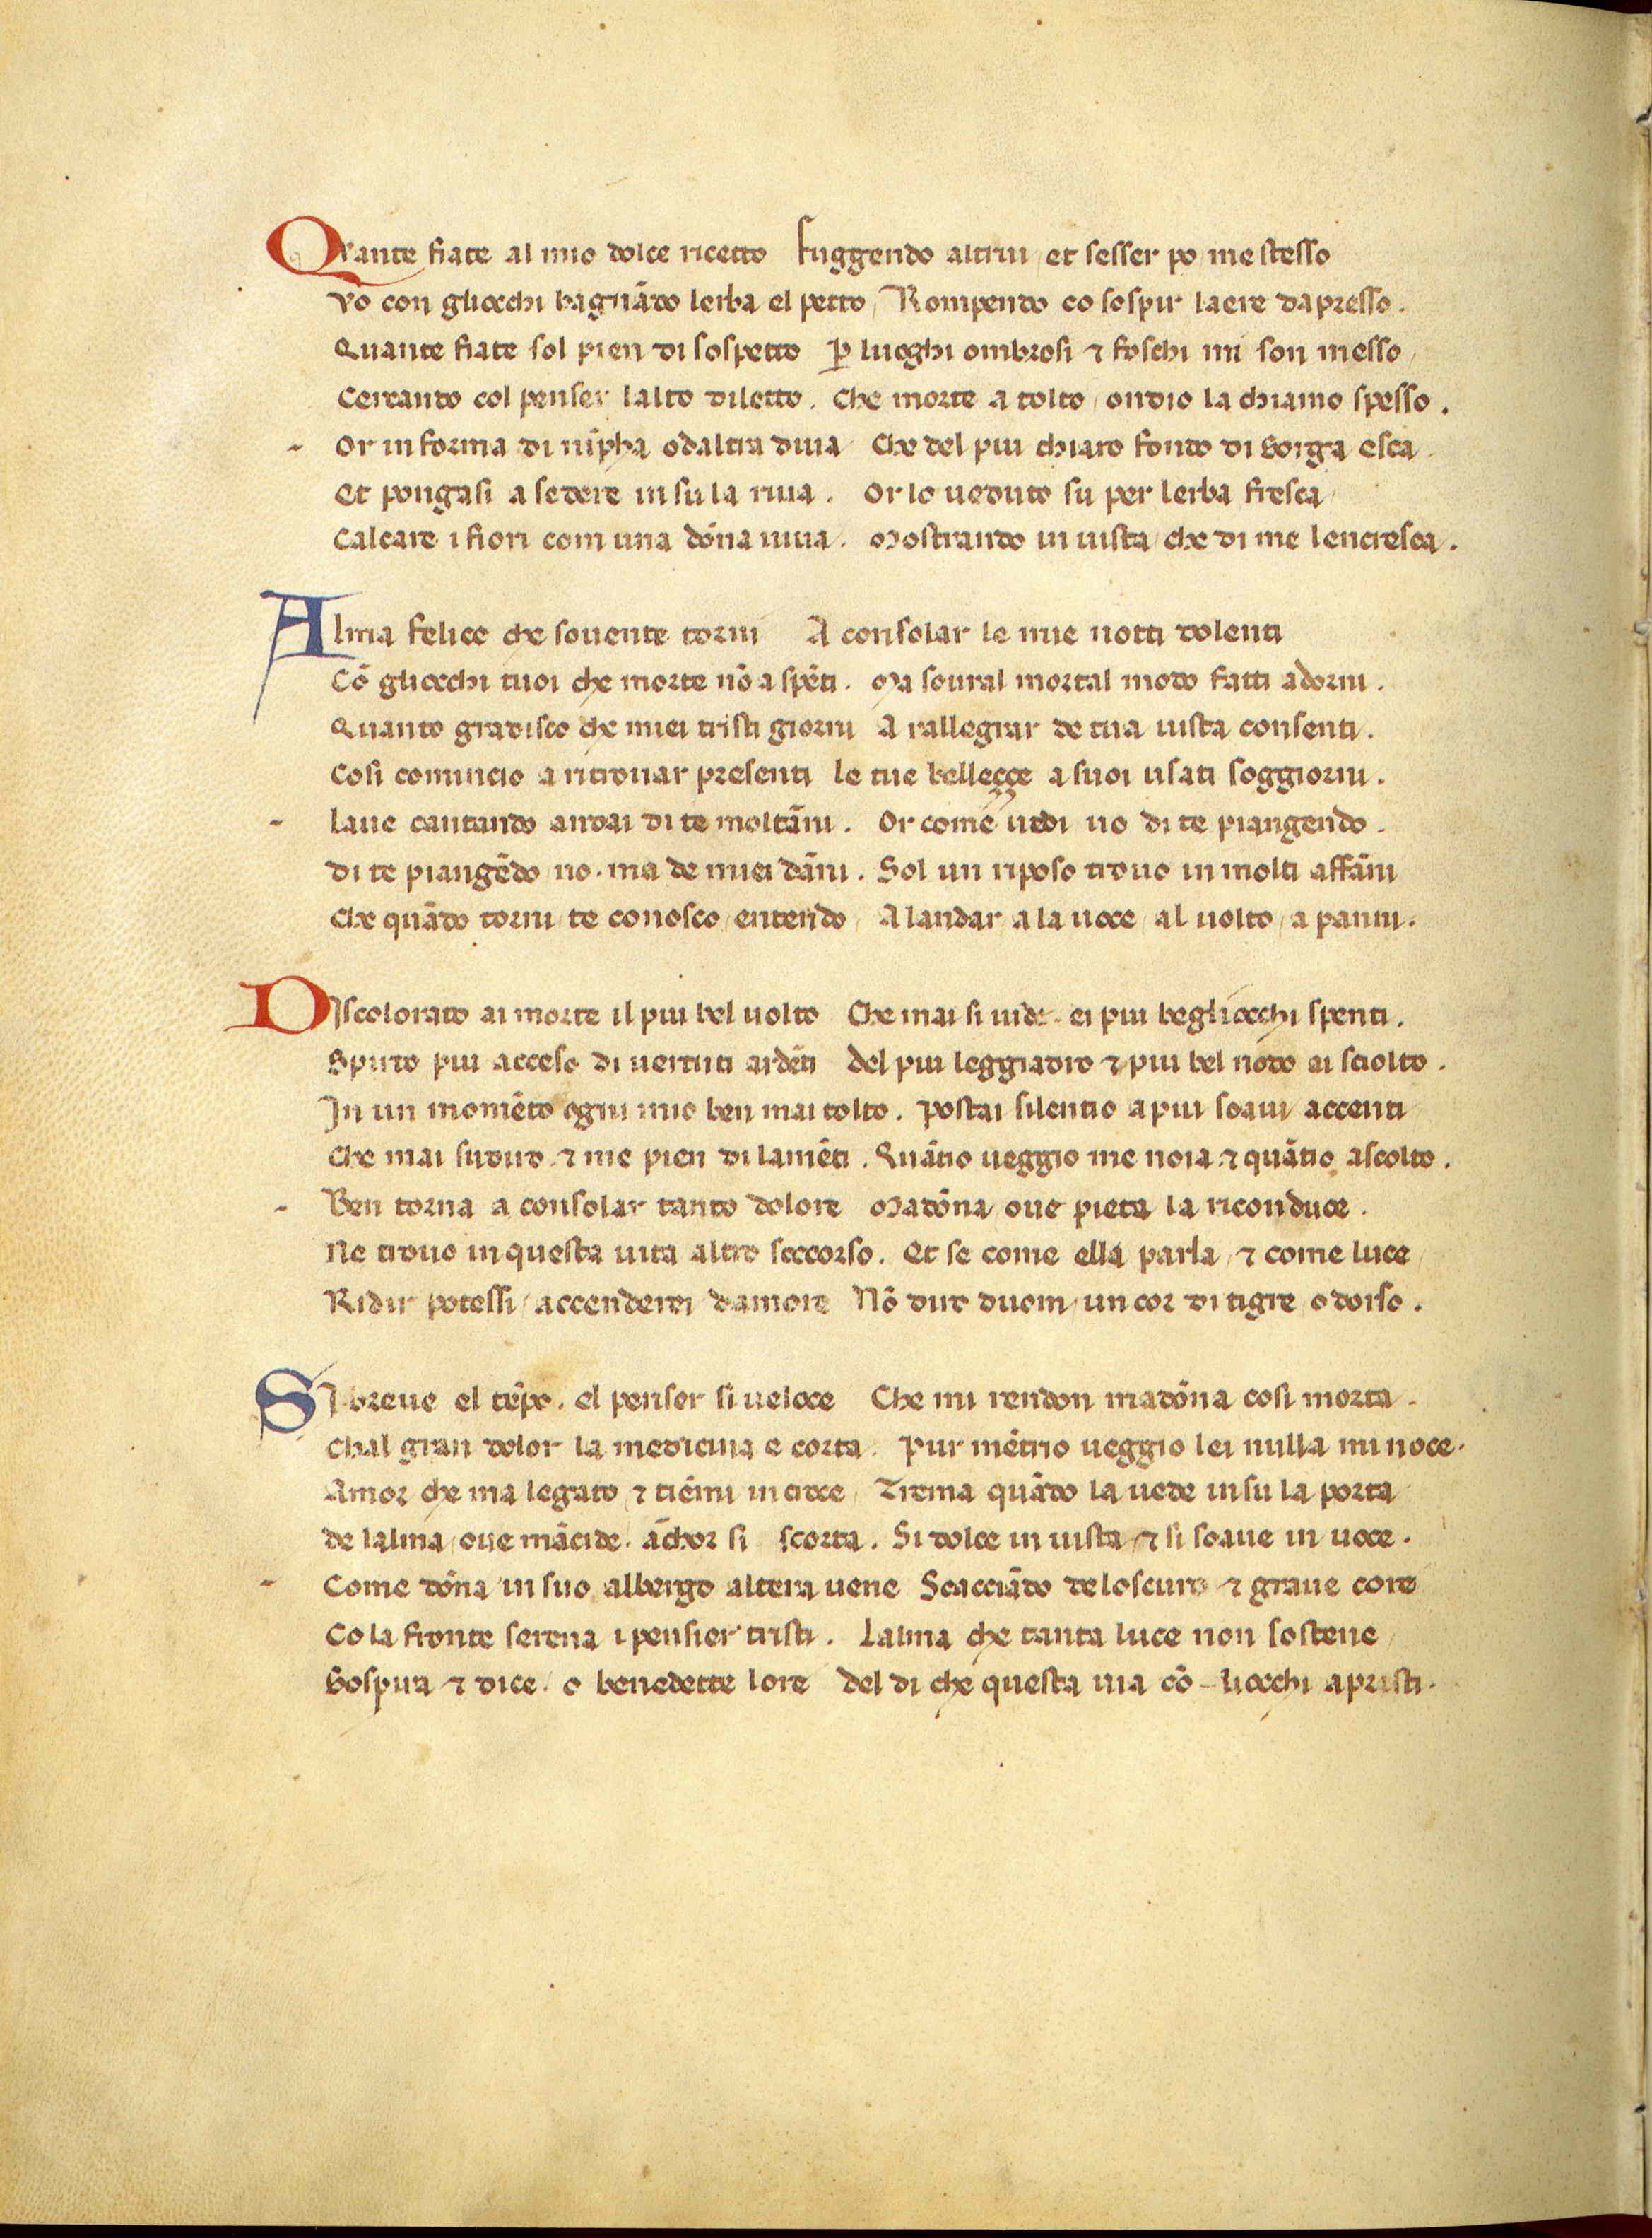 Quante fiate al mio dolce ricetto Fuggendo altrui et sesser po me stesso
Vo con gliocchi bagnãdo lerba el petto Rompendo co sospir laere dapresso.
Quante fiate sol pien di sospetto ꝑ luoghi ombrosi ⁊ foschi mi son messo
Cercando col penser lalto diletto. Che morte a tolto ondio la chiamo spesso.
Or in forma di nĩpha odaltra diua Che del piu chiaro fondo di Sorga esca
Et pongasi a sedere in su la riua. Or lo ueduto su per lerba fresca
Calcare i fiori com una dõna uiua. Mostrando in uista che di me lencresca.
Alma felice che souente torni A consolar le mie notti dolenti
Cõ gliocchi tuoi che morte nõ a spẽti. Ma soural mortal modo fatti adorni.
Quanto gradisco che miei tristi giorni A rallegrar de tua uista consenti.
Cosi comincio a ritrouar presenti le tue belleççe a suoi usati soggiorni.
Laue cantando andai di te moltãni. Or come uedi uo di te piangendo.
di te piangẽdo no. ma de miei dãni. Sol un riposo trouo in molti affãni
Che quãdo torni te conosco entendo A landar a la uoce al uolto a panni.
Discolorato ai morte il piu bel uolto Che mai si uide ei piu begliocchi spenti.
Spirto piu acceso di uertuti ardẽti del piu leggiadro ⁊ piu bel nodo ai sciolto.
In un momẽto ogni mio ben mai tolto. Postai silentio a piu soaui accenti
Che mai sudiro ⁊ me pien di lamẽti. Quãtio ueggio me noia ⁊ quãtio ascolto.
Ben torna a consolar tanto dolore Madõna oue pieta la riconduce.
Ne trouo in questa uita altro soccorso. Et se come ella parla ⁊ come luce
Ridir potessi accenderei damore Nõ diro duom un cor di tigre o dorso.
Si breue el tẽpo. el penser si ueloce Che mi rendon madõna cosi morta.
Chal gran dolor la medicina e corta. Pur mẽtrio ueggio lei nulla mi noce.
Amor che ma legato ⁊ tiẽmi in croce Trema quãdo la uede in su la porta
de lalma oue mãcide. ãchor si scorta. Si dolce in uista ⁊ si soaue in uoce.
Come dõna in suo albergo altera uene Scacciãdo deloscuro ⁊ graue core
Co la fronte serena i pensier tristi. Lalma che tanta luce non sostene
Sospira ⁊ dice. o benedette lore del di che questa uia cõ liocchi apristi.